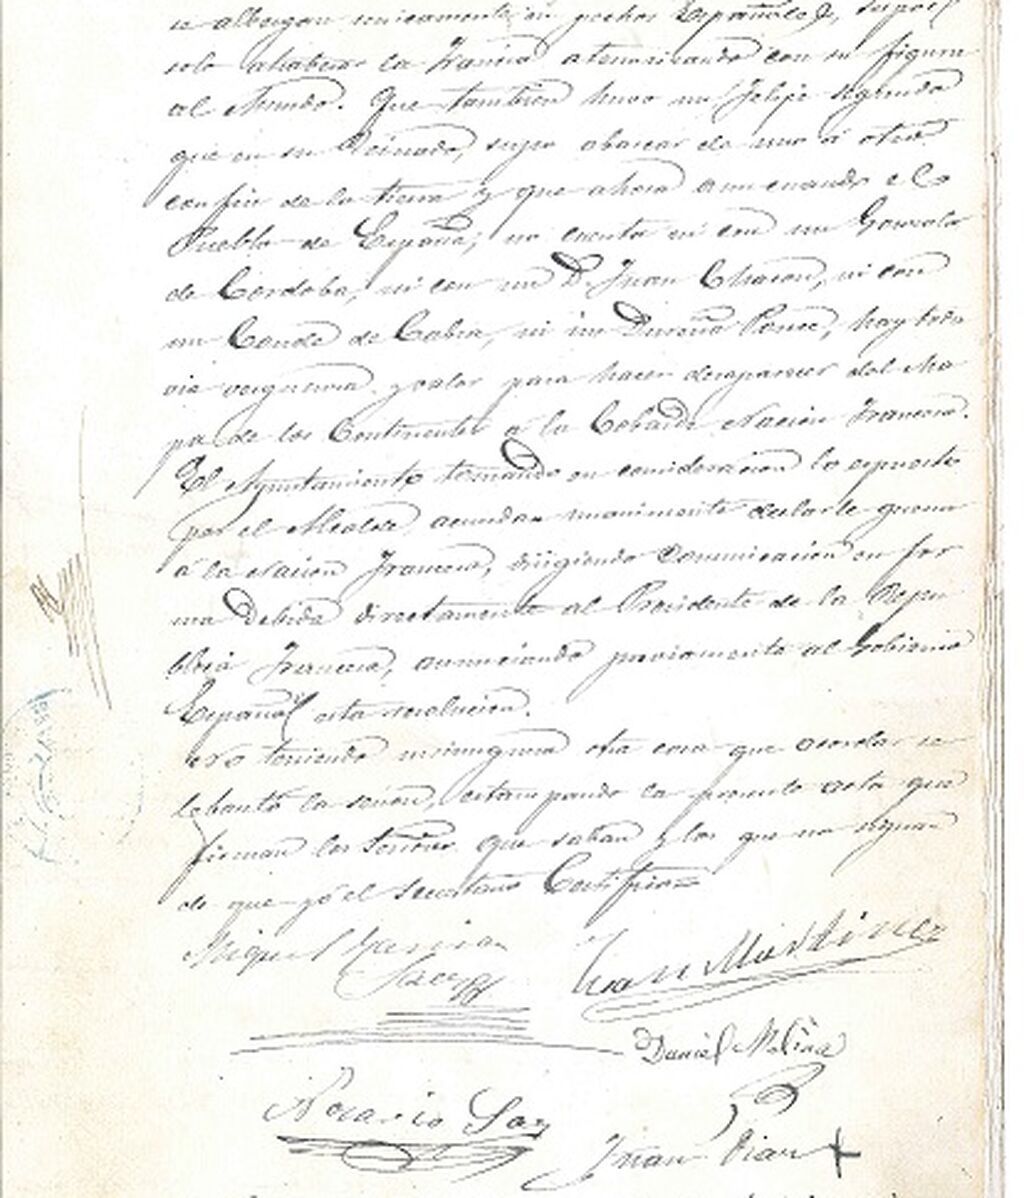 se albergan unicamente en pechos Españoles, supo
solo atravesar la Francia atemorizando con su figura
al Mundo. Que tambien huvo un Felipe Segundo
que en su Reinado, supo abarcar de uno á otro
confin de la tierra y que ahora aun cuando el
Pueblo de España, no cuenta ni con un Gonzalo
de Cordoba, ni con un D. Juan Chacon, ni con
un Conde de Cabra, ni un Ponce, hay toda
via verguenza y valor para hacer desaparecer del Ma
pa de los Continentes á la Cobarde Nacion Francesa.
El Ayuntamiento tomando en consideracion lo expuesto
por el Alcalde, acuerdan unanimente declarle guerra
á la Nacion Francesa, dirigiendo Comunicacion en for
ma Debida directamente al Presidente de la Repu
blica Francesa, anunciando previamente al Gobierno
Español esta resolucion.
Y no teniendo ninguna otra cosa que acordar se
lebantó la sesion, estampando la presente acta que
firman los Señores que saban y los que no signan
de que yo el Secretario Certifico=
Miguel Garcia
Saez
Juan Martinez
Daniel Molina
Rosario Saez
Juan Diaz +